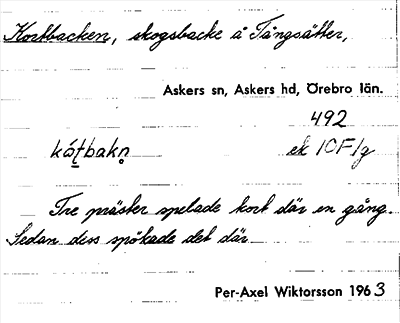 Kortbacken, skogsbacke å Tångsätter,
Askers sn, Askers hd, Örebro län.
492
kátbakn̥ ek 10F/g
Tre präster spelade kort där en gång.
Sedan dess spökade det där
Per-Axel Wiktorsson 1963